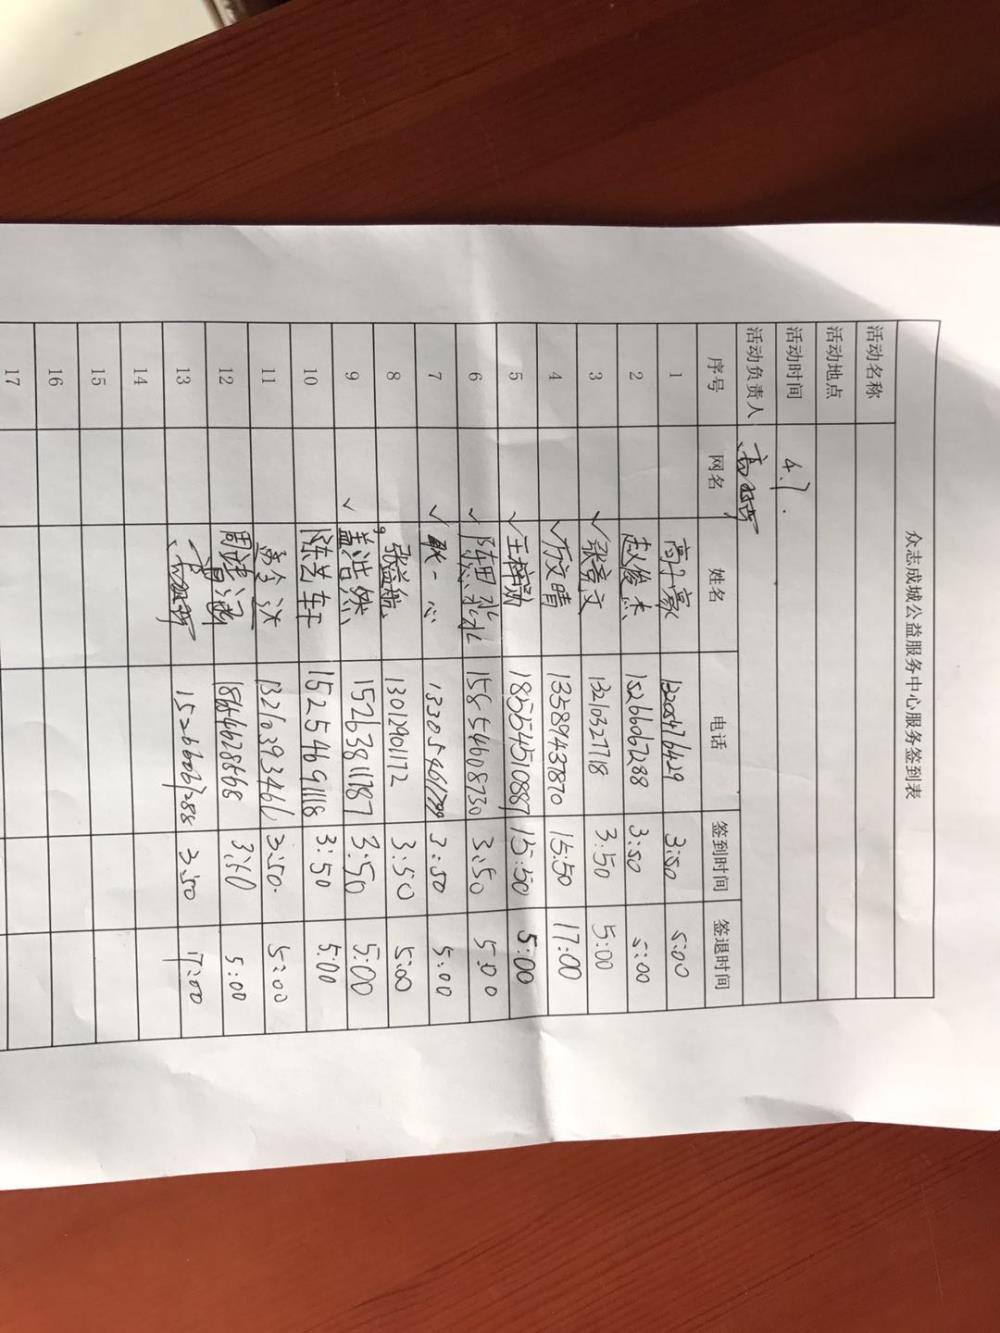 众志成城公益服务中心服务签到表
活动名称
活动地点
活动时间 4.7.
活动负责人
序号 网名 姓名 电话 签到时间 签退时间
1 高千豪 3:50 5:00
2 赵俊杰 15266067288 3:50 5:00
3 ✓ 张言文 3:50 5:00
4 ✓ 万文晴 13589437870 15:50 17:00
5 ✓ 王梓勋 18554510887 15:50 5:00
6 ✓ 陈思淼 15854608730 3:50 5:00
7 ✓ 耿一心 3:50 5:00
8 张益航 3:50 5:00
9 ✓ 盖浩然 15263811187 3:50 5:00
10 陈芝轩 15254691118 3:50 5:00
11 13210393461 3:50. 5:00
12 18646628868 3:50 5:00
13 15266067288 3:50 17:00
14
15
16
17